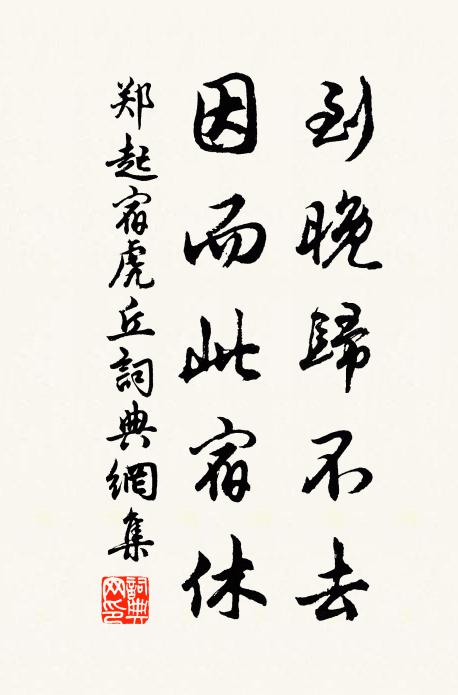 到晚歸不去
因而此宿休
郑起宿虎丘詞典網集
詞典網印